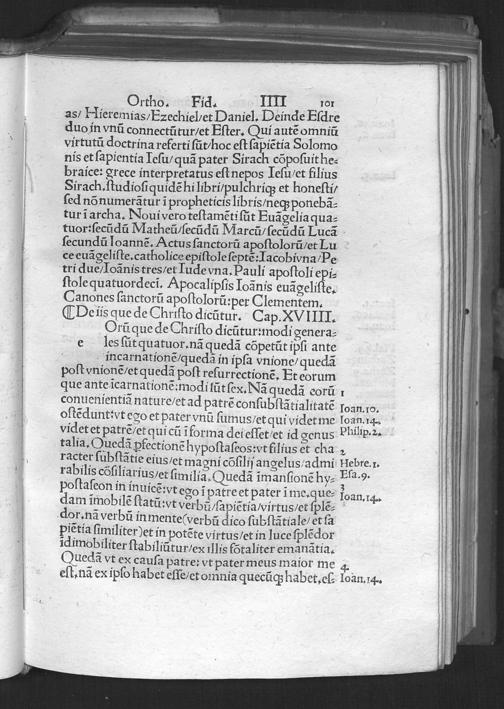 Ortho. Fid. IIII 101
as/ Hieremias/Ezechiel/et Daniel. Deinde Esdre
duo in vnū connectūtur/et Ester. Qui autē omniū
virtutū doctrina referti sūt/hoc est sapiētia Solomo
nis et sapientia Iesu/quā pater Sirach cōposuit he⸗
braice: grece interpretatus est nepos Iesu/et filius
Sirach. studiosi quidē hi libri/pulchriq; et honesti/
sed nō numerātur ī propheticis libris/neq; ponebā⸗
tur ī archa. Noui vero testamēti sūt Euāgelia qua⸗
tuor: secūdū Matheū/secūdū Marcū/secūdū Lucā
secundū Ioannē. Actus sanctorū apostolorū/et Lu
ce euāgeliste. catholice epistole septē: Iacobi vna/Pe
tri due/Ioānis tres/et Iude vna. Pauli apostoli epi⸗
stole quatuordecī. Apocalipsis Ioānis euāgeliste.
Canones sanctorū apostolorū: per Clementem.
⁋ De iis que de Christo dicūtur. Cap. XVIIII.
e Orū que de Christo dicūtur: modi genera⸗
les sūt quatuor. nā quedā cōpetūt ipsi ante
incarnationē/quedā in ipsa vnione/quedā
post vnionē/et quedā post resurrectionē. Et eorum
que ante īcarnationē: modi sūt sex. Nā quedā eorū 1
conuenientiā nature/et ad patrē consubstātialitatē
ostēdunt: vt ego et pater vnū sumus/et qui videt me Ioan. 10.
videt et patrē/et qui cū ī forma dei esset/et id genus Ioan. 14.
talia. Quedā pfectionē hypostaseos: vt filius et cha Philip. 2.
racter substātie eius/et magni cōsilij angelus/admi 2
rabilis cōsiliarius/et similia. Quedā īmansionē hy⸗ Hebre. 1.
postaseon in inuicē: vt ego ī patre et pater ī me. que⸗ Esa. 9.
dam īmobilē statū: vt verbū/sapiētia/virtus/et splē⸗ 3
dor. nā verbū in mente (verbū dico substātiale/et sa Ioan. 14.
piētia similiter) et in potēte virtus/et in luce splēdor
īdimobiliter stabiliūtur/ex illis sōtaliter emanātia.
Quedā vt ex causa patre: vt pater meus maior me 4.
est. nā ex ipso habet esse/et omnia quecūq; habet. es⸗ Ioān. 14.